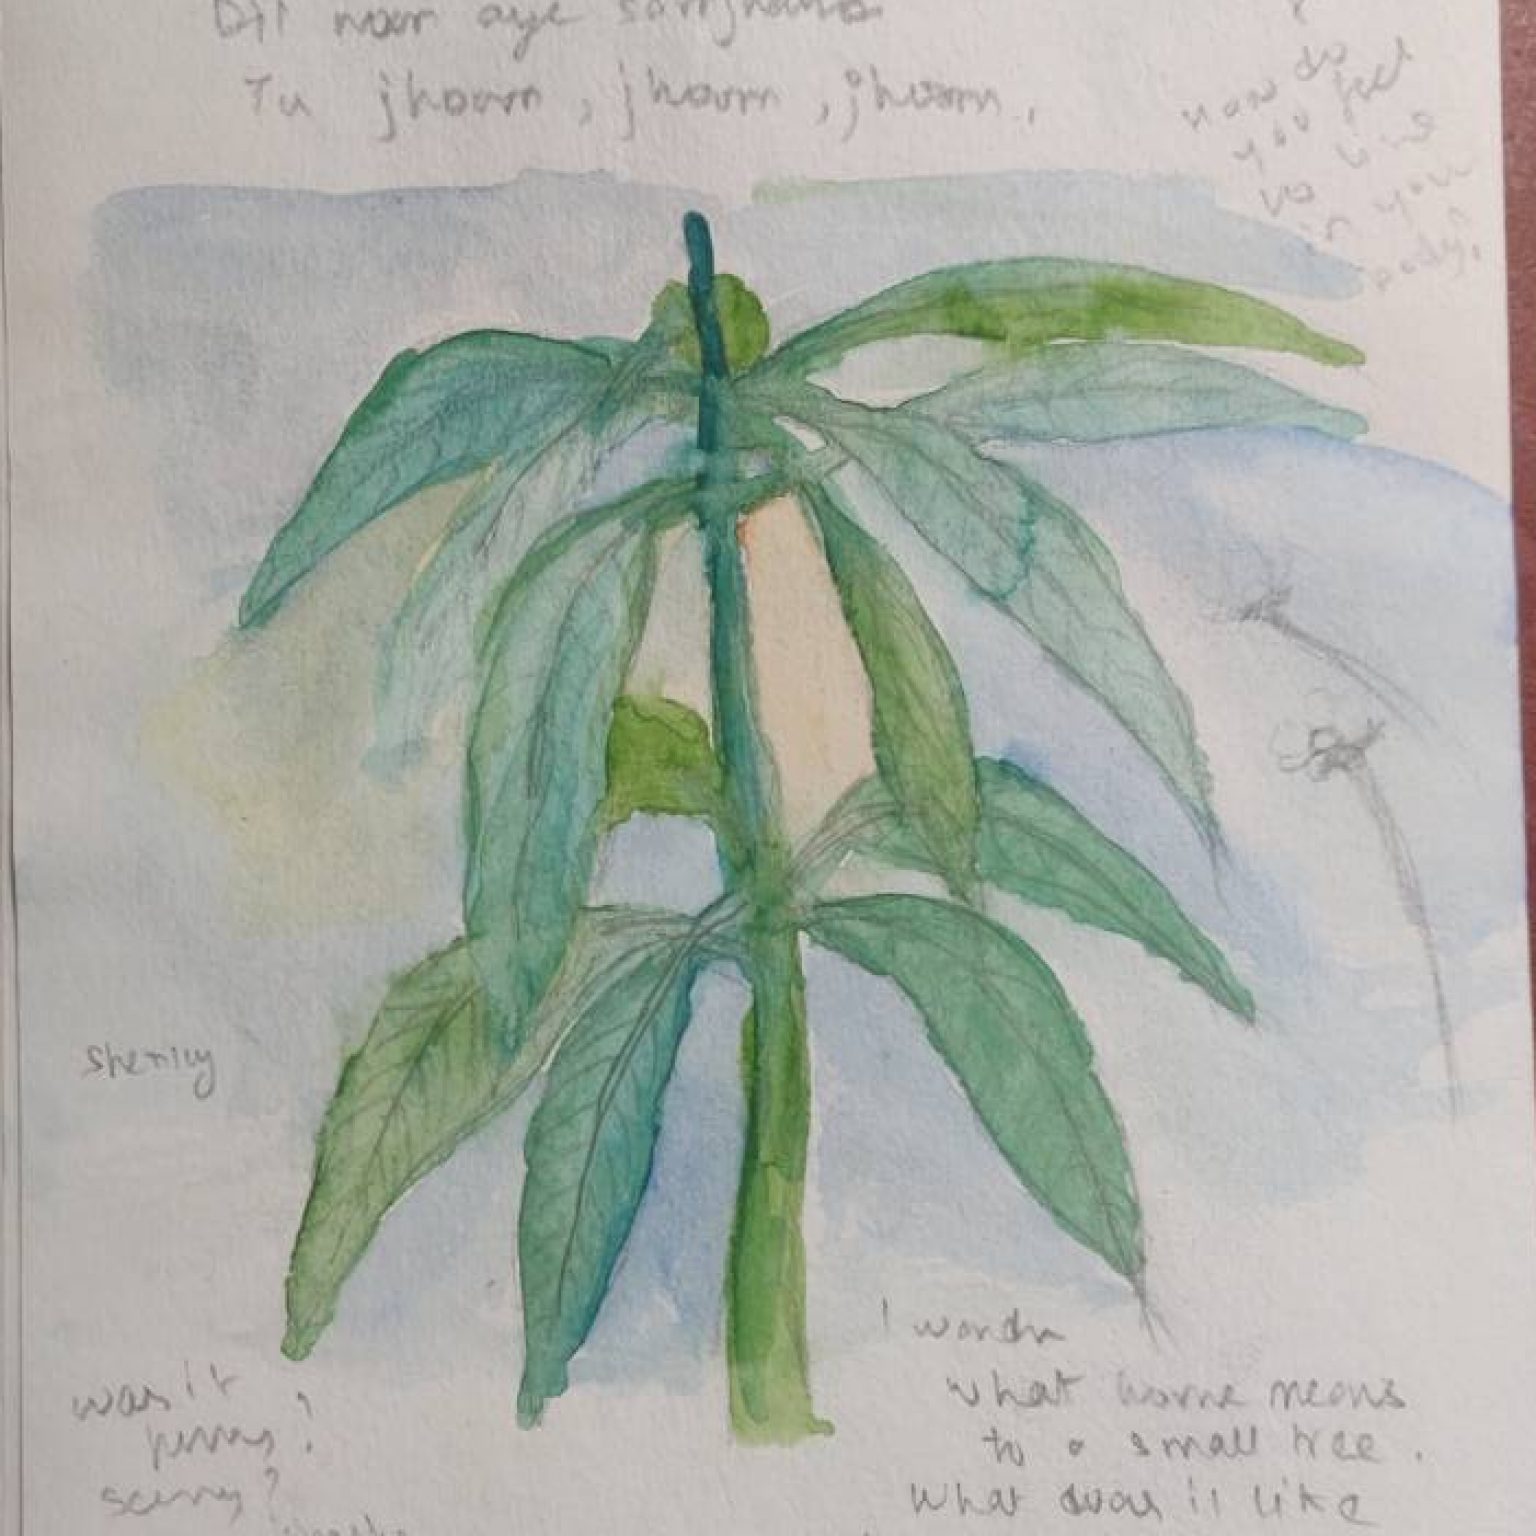 Dil
Tu jhoom, jhoom, jhoom,
how do
you feel
to live
in your
body?
was it
funny?
scary?
I wonder
what home means
to a small tree.
What does it like